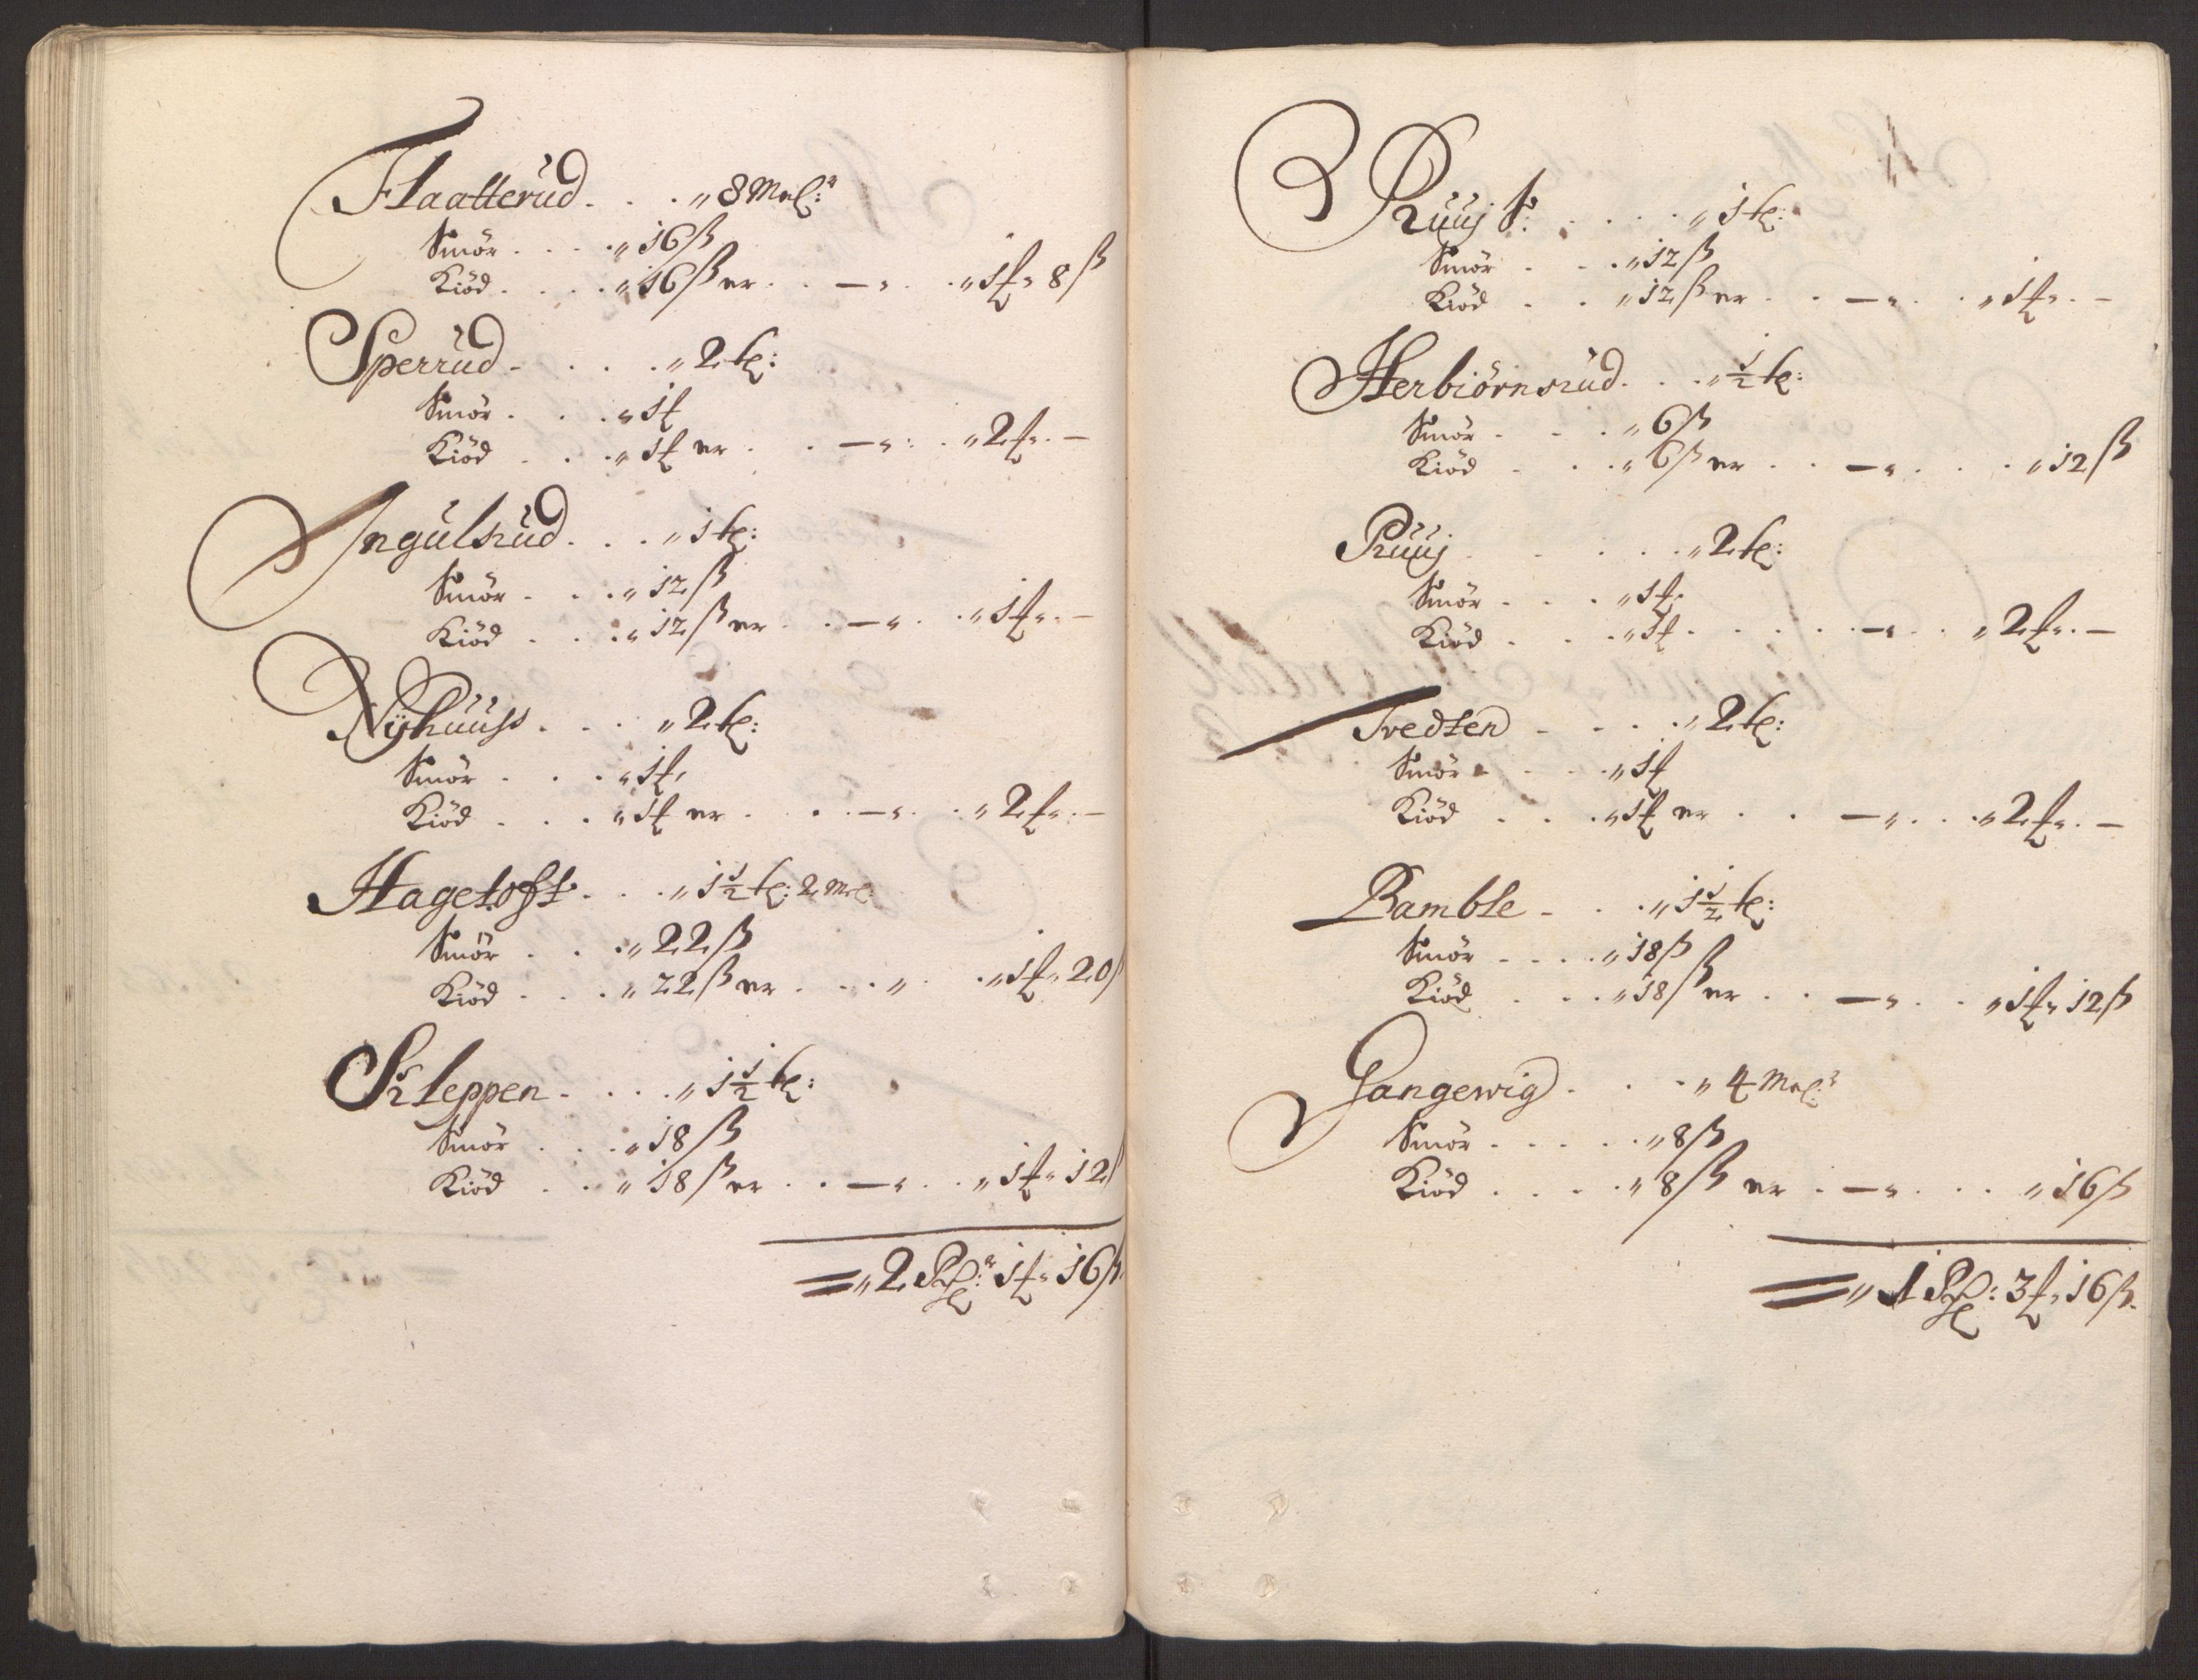 Flaatterud . . . „ 8 Mel:r
Smör . . . „ 16 ß
Kiöd . . . . „ 16 ß er . . — „ . . „ 1 ƒ „ 8 ß
Sperrud . . . . „ 2 tl:
Smör . . . „ 1 ƒ
Kiöd . . . „ 1 ƒ er . . — „ . . „ 2 ƒ „ . —
Ingulsrud . . . „ 1 tl:
Smör . . . „ 12 ß
Kiöd . . . „ 12 ß er . . — „ . . „ 1 ƒ „ . —
Nÿhuuss . . . „ 2 tl:
Smör . . . „ 1 ƒ
Kiöd . . . „ 1 ƒ er . . . — „ . . „ 2 ƒ „ . —
Hagetoft . . . „ 1 1/2 tl: 2 Mel:
Smör . . . „ 22 ß
Kiöd . . . „ 22 ß er . . . „ . . „ 1 ƒ „ 20 ß
Kleppen . . . . „ 1 1/2 tl:
Smör . . . „ 18 ß
Kiöd . . . „ 18 ß er . . — „ . . „ 1 ƒ „ 12 ß
= „ 2 Rdl:r 1 ƒ „ 16 ß
Ruuj . . . . „ 1 tl:
Smör . . . „ 12 ß
Kiöd . . „ 12 ß er . . — „ . . „ 1 ƒ „ . —
Herbiörnsrud . . . „ 1/2 tl:
Smör . . . „ 6 ß
Kiöd . . . „ 6 ß er . . — „ . . . „ 12 ß
Ruuj . . . . . „ 2 tl:
Smör . . . „ 1 ƒ
Kiöd . . . „ 1 ƒ . . . . — „ . . „ 2 ƒ „ . —
Tvedten . . . . „ 2 tl:
Smör . . . „ 1 ƒ
Kiöd . . . „ 1 ƒ er . . — „ . . „ 2 ƒ „ . —
Ramble . . . „ 1 1/2 tl:
Smör . . . . „ 18 ß
Kiöd . . . „ 18 ß er . . — „ . . „ 1 ƒ „ 12 ß
Gangewig . . . „ 4 Mel:r
Smör . . . . . „ 8 ß
Kiöd . . . . „ 8 ß er . — „ . . . „ 16 ß
= „ 1 Rdl: 3 ƒ „ 16 ß